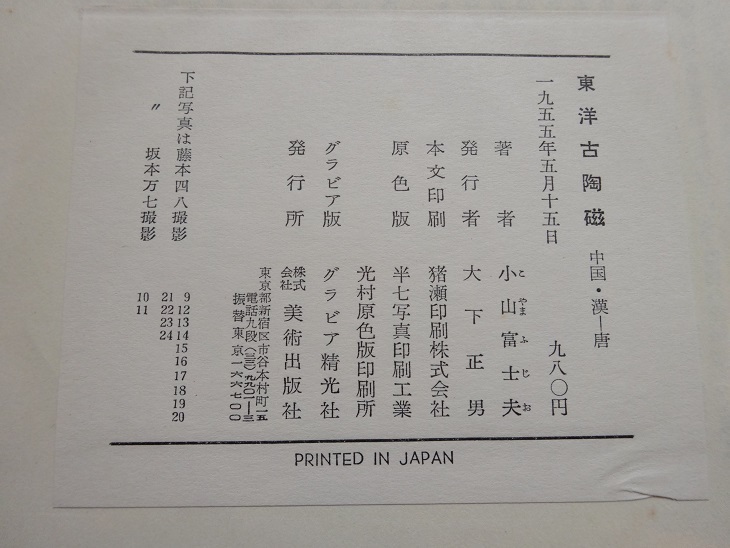 東洋古陶磁 中国・漢―唐
一九五五年五月十五日 九八〇円
著者 小山富士夫
こ やま ふ じ お
発行者 大下正男
本文印刷 猪瀬印刷株式会社
原色版 半七写真印刷工業
光村原色版印刷所
グラビア版 グラビア精光社
発行所 株式会社 美術出版社
東京都新宿区市谷本村町一五
電話九段(三三)九九〇一―三
振替東京一六六七〇〇
下記写真は藤本四八撮影 9 12 13 14 15 16 17 18 19 20
21 22 23 24
〃 坂本万七撮影 10 11
PRINTED IN JAPAN